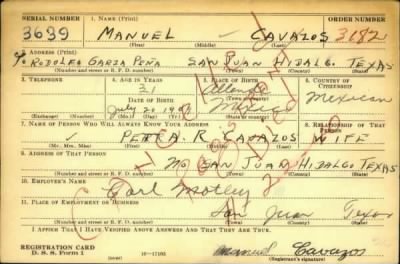 SERIAL NUMBER 1. NAME (Print) ORDER NUMBER
3639 MANUEL CAVAZOS 3182
(First) (Middle) (Last)
2. ADDRESS (Print)
% RODOLFO GARZA PEÑA SAN JUAN HIDALGO. TEXAS
(Number and street or R. F. D. number) (Town) (County) (State)
3. TELEPHONE 4. AGE IN YEARS 5. PLACE OF BIRTH 6. COUNTRY OF CITIZENSHIP
31 Allende
DATE OF BIRTH (Town or county)
July 21 Mexico Mexican
(Exchange) (Number) (Mo.) (Day) (Yr.) (State or country)
7. NAME OF PERSON WHO WILL ALWAYS KNOW YOUR ADDRESS 8. RELATIONSHIP OF THAT PERSON
PETRA. R. CAVAZOS WIFE
(Mr., Mrs., Miss) (First) (Middle) (Last)
9. ADDRESS OF THAT PERSON
NO SAN JUAN HIDALGO TEXAS
(Number and street or R. F. D. number) (Town) (County) (State)
10. EMPLOYER'S NAME
Earl Motley
11. PLACE OF EMPLOYMENT OR BUSINESS
San Juan Texas
(Number and street or R. F. D. number) (Town) (County) (State)
I AFFIRM THAT I HAVE VERIFIED ABOVE ANSWERS AND THAT THEY ARE TRUE.
REGISTRATION CARD
D. S. S. Form 1 16—17105 Manuel Cavazos
(Registrant's signature)